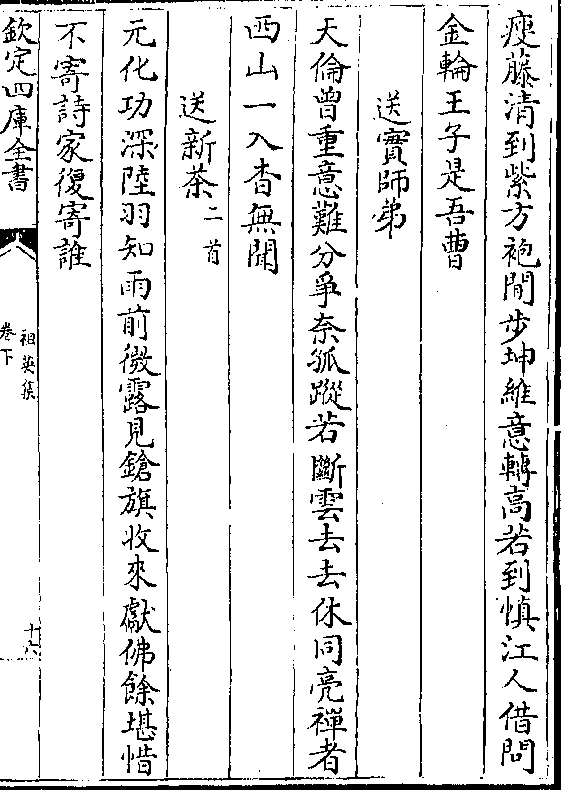 瘦藤清到紫方袍閒步坤維意轉高若到慎江人借問
金輪王子是吾曹
送實師弟
天倫曾重意難分爭奈孤蹤若斷雲去去休同亮禪者
西山一入杳無聞
送新茶二首
元化功深陸羽知雨前微露見鎗旗收來獻佛餘堪惜
不寄詩家復寄誰
欽定四庫全書
祖英集
卷下
十六